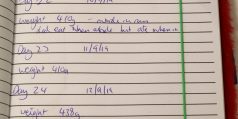 Day 22 10/9/19
weight 410g - outside in run
not eat when outside but ate when in
Day 23 11/9/19
weight 410g
Day 24 12/9/19
weight 438g